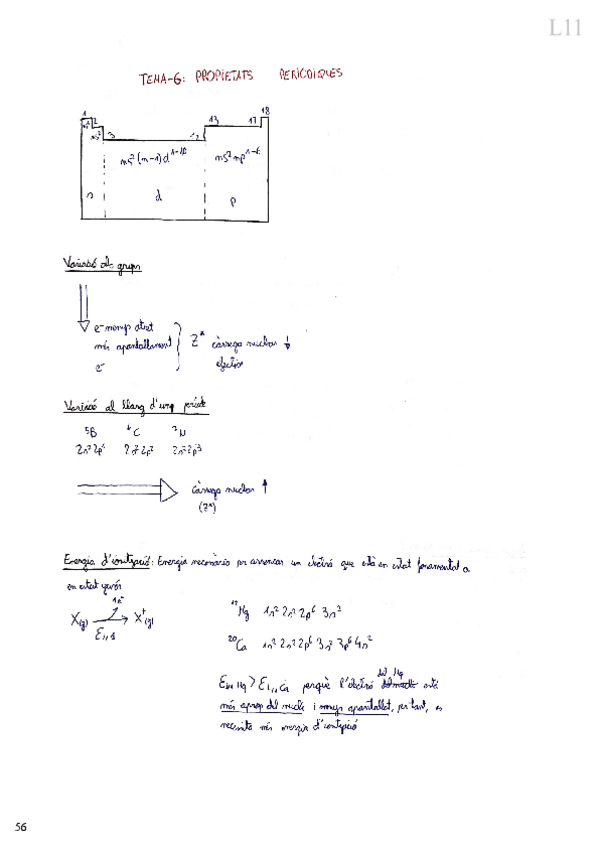 L11
TEMA-6: PROPIETATS PERIÒDIQUES
1 18
ns² 2 13 17
ns² 3 12
ns²(n-1)d¹⁻¹⁰ ns²np¹⁻⁶
s d p
Variació als grups
e⁻ menys atret
més apantallament
e⁻
Z* càrrega nuclear ↓
efectiva
Variació al llarg d'un període
⁵B ⁶C ⁷N
2s²2p¹ 2s²2p² 2s²2p³
càrrega nuclear ↑
(Z*)
Energia d'ionització: Energia necessària per arrencar un electró que està en estat fonamental a
en estat gasós
1e⁻
X(g) → X⁺(g)
E i,1
Mg 1s² 2s² 2p⁶ 3s²
²⁰Ca 1s² 2s² 2p⁶ 3s² 3p⁶ 4s²
del Mg
Ei,1 Mg > Ei,1 Ca perquè l'electró està
més aprop del nucli i menys apantallat, per tant, es
necessita més energia d'ionització
56